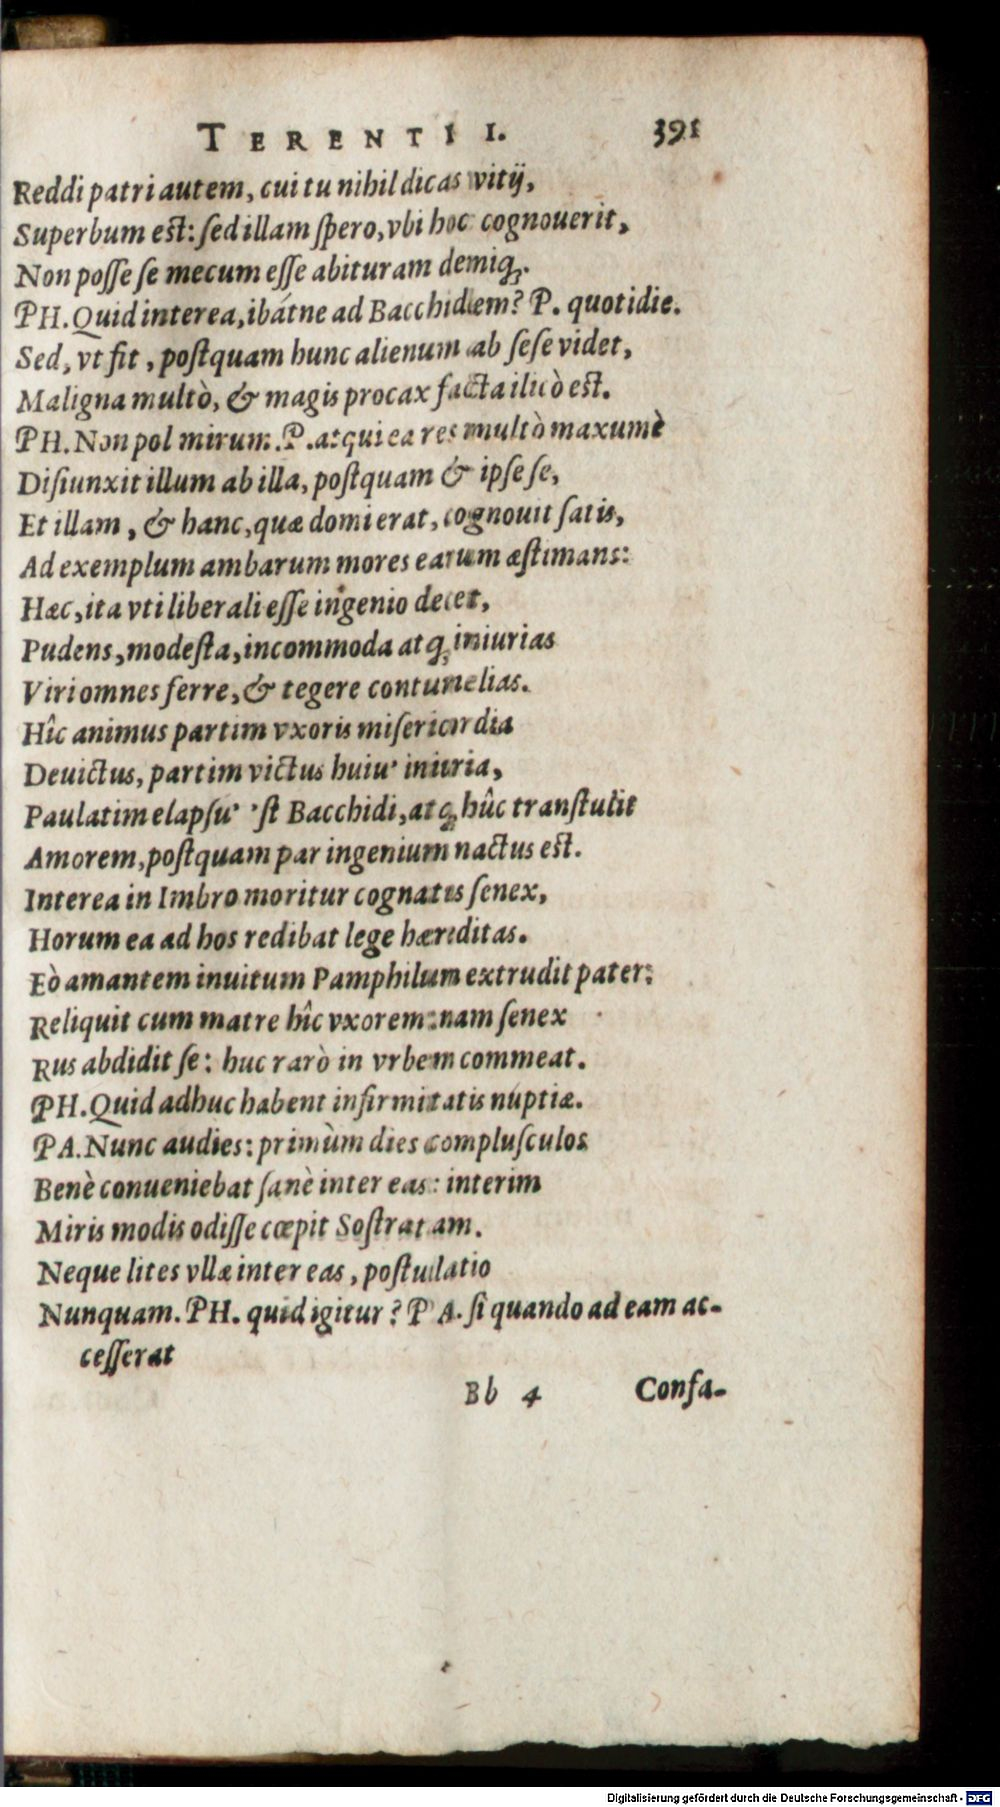 TERENTII I. 391
Reddi patri autem, cui tu nihil dicas vitij,
Superbum est: ſed illam ſpero, vbi hoc cognouerit,
Non poſſe ſe mecum eſſe abituram demiq;.
PH. Quid interea, ibátne ad Bacchidem? P. quotidie.
Sed, vt fit, poſtquam hunc alienum ab ſeſe videt,
Maligna multò, & magis procax facta ilicò eſt.
PH. Non pol mirum. P. atqui ea res multò maxumè
Diſiunxit illum ab illa, poſtquam & ipſe ſe,
Et illam, & hanc, quæ domi erat, cognouit ſatis,
Ad exemplum ambarum mores earum æſtimans:
Hæc, ita vti liberali eſſe ingenio decet,
Pudens, modeſta, incommoda atq; iniurias
Viri omnes ferre, & tegere contumelias.
Hîc animus partim vxoris miſericordia
Deuictus, partim victus huiu' iniuria,
Paulatim elapſu' 'ſt Bacchidi, atq; hûc tranſtulit
Amorem, poſtquam par ingenium nactus eſt.
Interea in Imbro moritur cognatus ſenex,
Horum ea ad hos redibat lege hæreditas.
Eò amantem inuitum Pamphilum extrudit pater:
Reliquit cum matre hîc vxorem: nam ſenex
Rus abdidit ſe: huc rarò in vrbem commeat.
PH. Quid adhuc habent infirmitatis nuptiæ.
PA. Nunc audies: primùm dies compluſculos
Benè conueniebat ſanè inter eas: interim
Miris modis odiſſe cœpit Soſtratam.
Neque lites vllæ inter eas, poſtulatio
Nunquam. PH. quid igitur? PA. ſi quando ad eam ac-
ceſſerat
Bb 4 Confa-
Digitalisierung gefördert durch die Deutsche Forschungsgemeinschaft - DFG